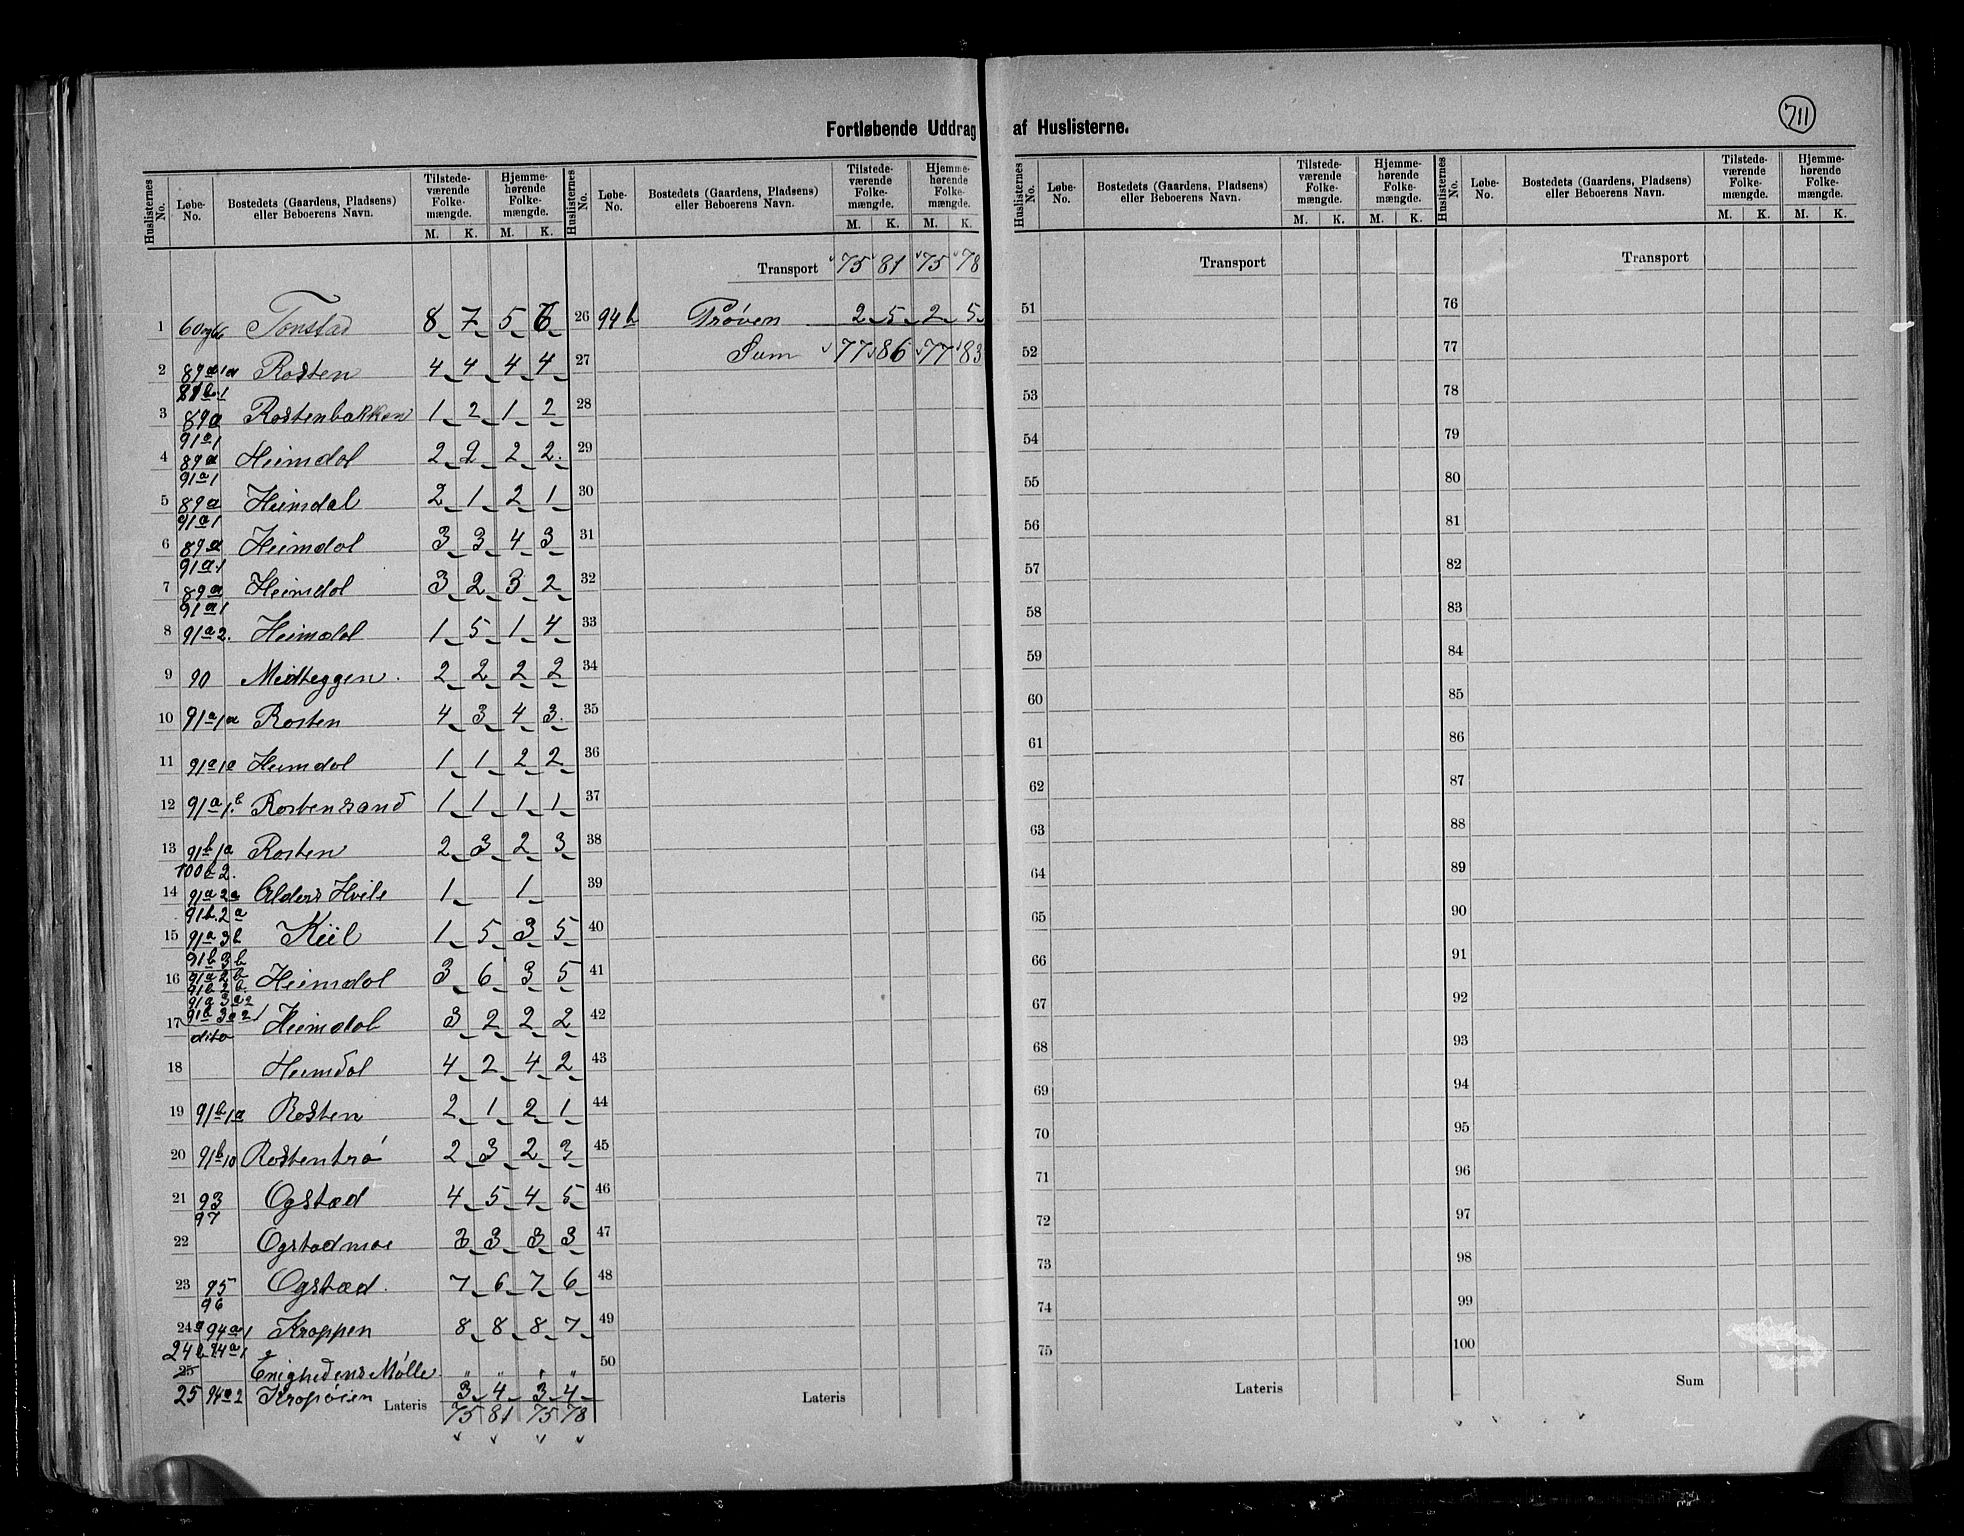 711
Fortløbende Uddrag af Huslisterne.
Huslisternes No. Løbe-No. Bostedets (Gaardens, Pladsens) eller Beboerens Navn. Tilstedeværende Folkemængde. M. K. Hjemmehørende Folkemængde. M. K.
Huslisternes No. Løbe-No. Bostedets (Gaardens, Pladsens) eller Beboerens Navn. Tilstedeværende Folkemængde. M. K. Hjemmehørende Folkemængde. M. K.
Huslisternes No. Løbe-No. Bostedets (Gaardens, Pladsens) eller Beboerens Navn. Tilstedeværende Folkemængde. M. K. Hjemmehørende Folkemængde. M. K.
Huslisternes No. Løbe-No. Bostedets (Gaardens, Pladsens) eller Beboerens Navn. Tilstedeværende Folkemængde. M. K. Hjemmehørende Folkemængde. M. K.
1 Tonstad 8 7 5 6
2 89a1a Rosten 4 4 4 4
3 89a Rostenbakken 1 2 1 2
91a1
4 89a Heimdal 2 2 2 2
91a1
5 89a Heimdal 2 1 2 1
91a1
6 89a Heimdal 3 3 4 3
91a1
7 89a Heimdal 3 2 3 2
91a1
8 91a2. Heimdal 1 5 1 4
9 90 Midteggen. 2 2 2 2
10 91a1a Rosten 4 3 4 3
11 91a1a Heimdal 1 1 2 2
12 91a1.b Rostensand 1 1 1 1
13 91b1a Rosten 2 3 2 3
100b2.
14 91a2a Alders Hvile 1 1
91b.2a
15 91a3b Kiil 1 5 3 5
91b3b
16 91a2b Heimdal 3 6 3 5
91a3a2
17 91b3a2 Heimdal 3 2 2 2
dito
18 Heimdal 4 2 4 2
19 91b1a Rosten 2 1 2 1
20 91b10 Rostentrø 2 3 2 3
21 93 Ogstad 4 5 4 5
97
22 Ogstadmoe 3 3 3 3
23 95 Ogstad. 7 6 7 6
96
24a 94a1 Kroppen 8 8 8 7
24b 94a1
25 Enighedens Mølle. " " " "
25 94a2 Kropøien 3 4 3 4
Lateris 75 81 75 78
Transport 75 81 75 78
26 94b Prøven 2 5 2 5
27 Sum 77 86 77 83
28
29
30
31
32
33
34
35
36
37
38
39
40
41
42
43
44
45
46
47
48
49
50
Lateris
Transport
51
52
53
54
55
56
57
58
59
60
61
62
63
64
65
66
67
68
69
70
71
72
73
74
75
Lateris
Transport
76
77
78
79
80
81
82
83
84
85
86
87
88
89
90
91
92
93
94
95
96
97
98
99
100
Sum